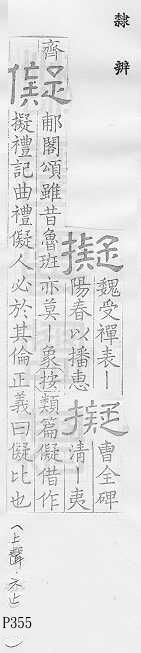 隸辨
擬
魏受禪表｜
陽春以播恵
擬
曹全碑
清｜夷
齊
儗
郙閣頌雖昔魯班亦莫｜象按類篇儗借作
擬禮記曲禮儗人必於其倫正義曰儗比也
（上聲·六止
P355
）